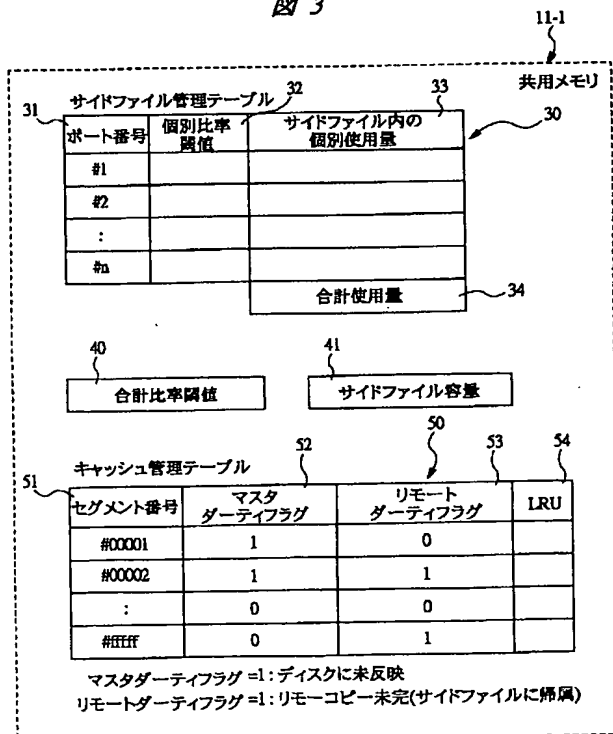 図 3
11-1
共用メモリ
サイドファイル管理テーブル
31
32
33
30
ポート番号
個別比率
閾値
サイドファイル内の
個別使用量
#1
#2
:
#n
合計使用量
34
40
41
合計比率閾値
サイドファイル容量
50
キャッシュ管理テーブル
51
52
53
54
セグメント番号
マスタ
ダーティフラグ
リモート
ダーティフラグ
LRU
#00001 1 0
#00002 1 1
: 0 0
#fffff 0 1
マスタダーティフラグ =1 : ディスクに未反映
リモートダーティフラグ =1 : リモーコピー未完(サイドファイルに帰属)